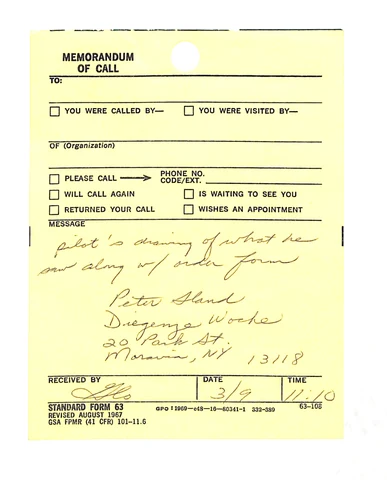 MEMORANDUM
OF CALL
TO:
YOU WERE CALLED BY— YOU WERE VISITED BY—
OF (Organization)
PLEASE CALL → PHONE NO. CODE/EXT.
WILL CALL AGAIN IS WAITING TO SEE YOU
RETURNED YOUR CALL WISHES AN APPOINTMENT
MESSAGE
pilot's drawing of what he
saw along w/ order form
Peter
Woche
20 Park St.
Moravia, NY 13118
RECEIVED BY DATE TIME
3/9 11:10
STANDARD FORM 63 GPO : 1969—c48—16—80341-1 332-389 63-108
REVISED AUGUST 1967
GSA FPMR (41 CFR) 101-11.6